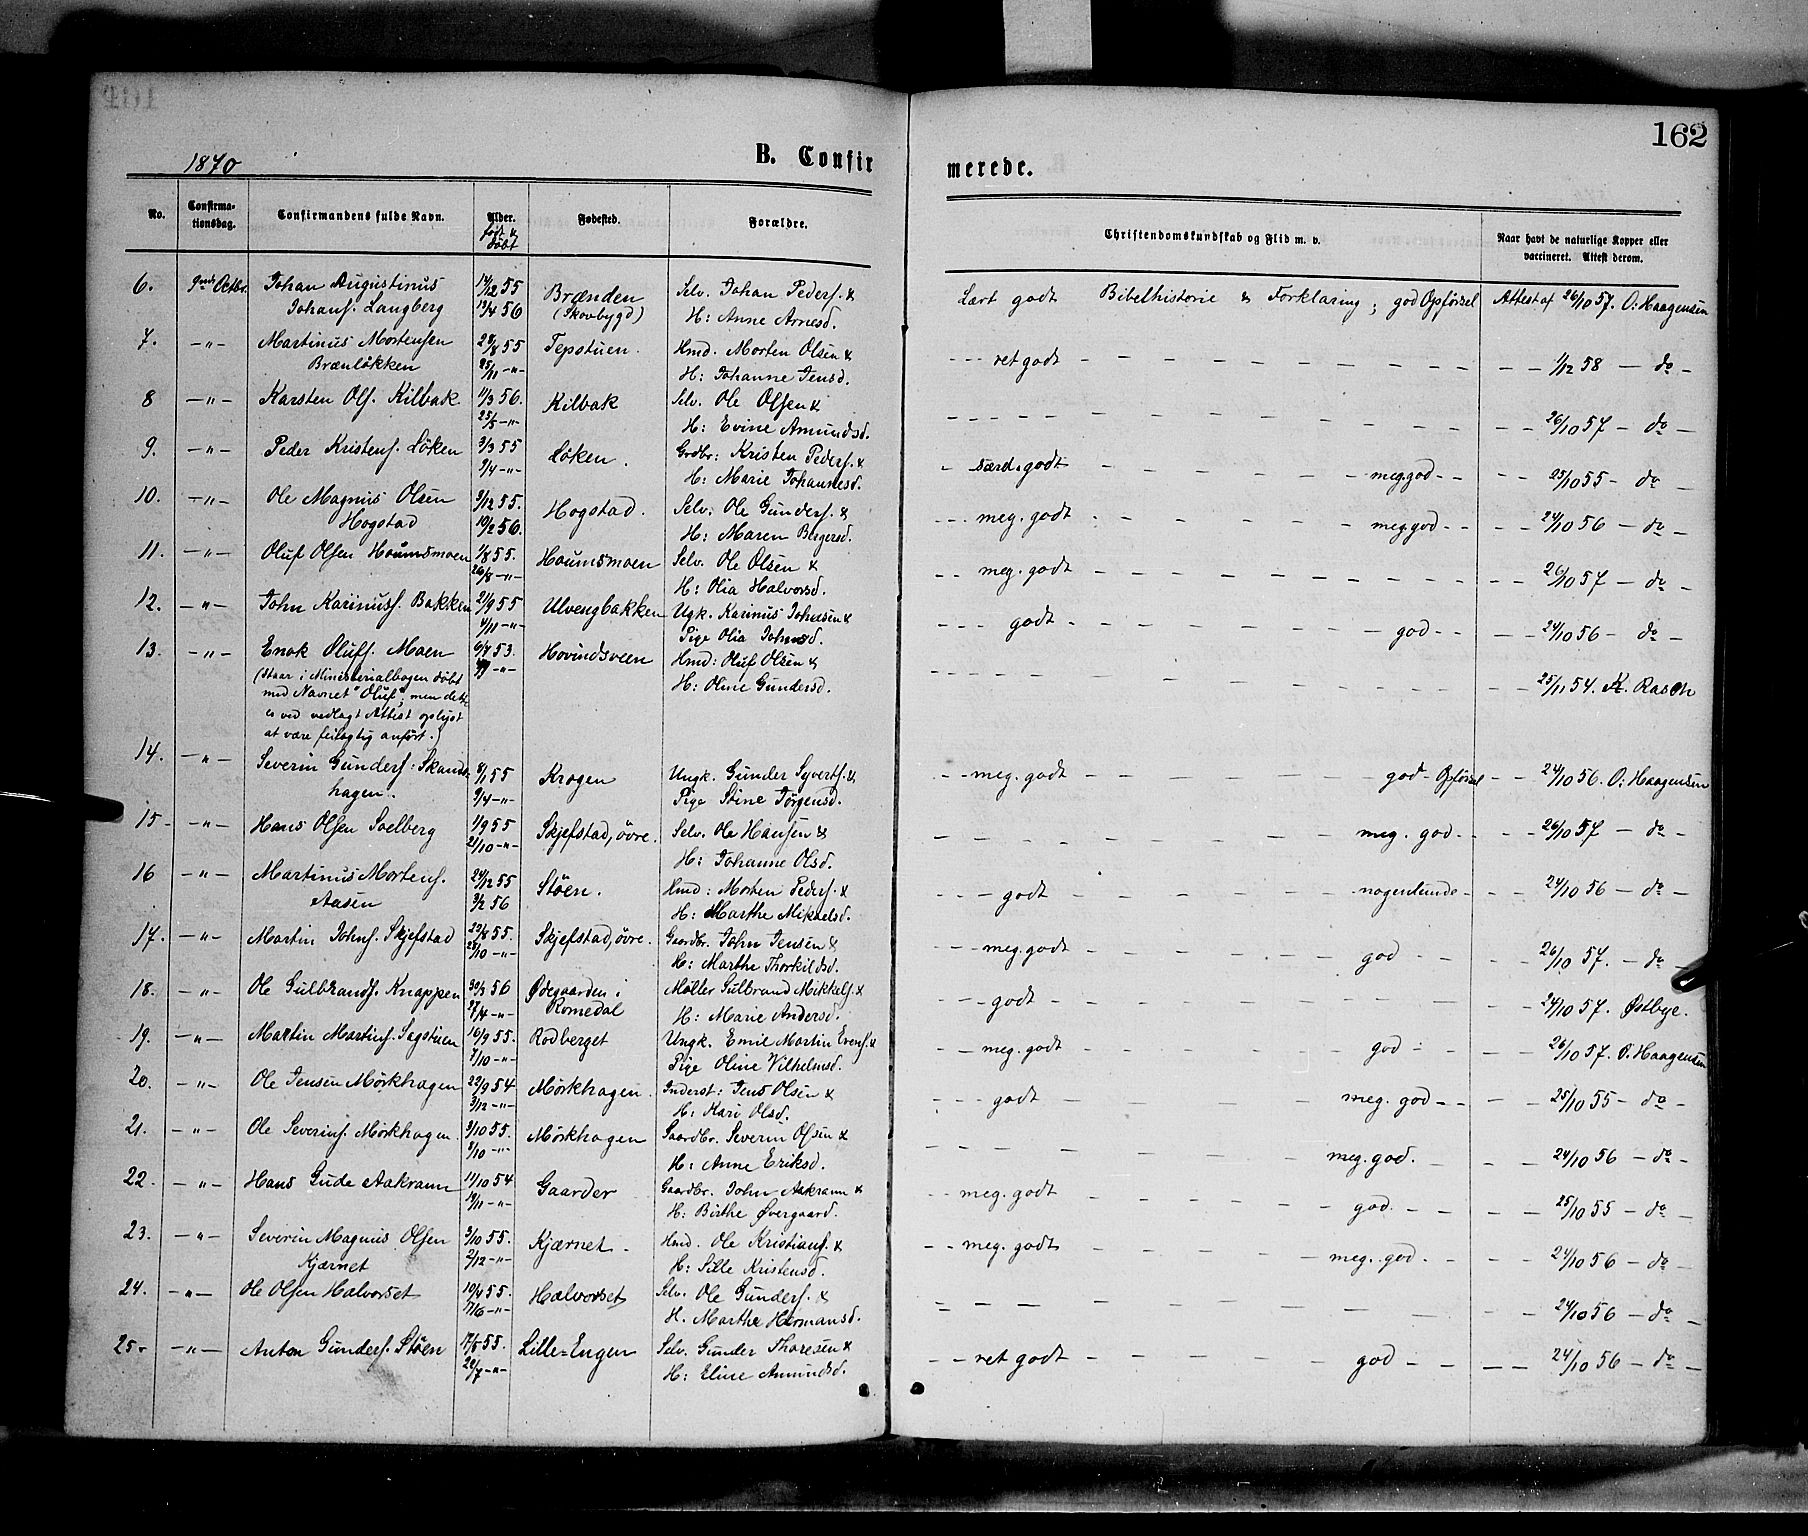 162
1870
B. Confirmerede.
No. Confirmationsdag. Confirmandens fulde Navn. Alder. født & døbt Fødested. Forældre. Christendomskundskab og Flid m. v. Naar havt de naturlige Kopper eller vaccineret. Attest derom.
6. 9nd Octbr. Johan Augustinus 14/12 55 Brænden Selv. Johan Peders. & Lært godt Bibelhistorie & Forklaring; god Opførsel Attest af 26/10 57. O: Haagensen
Johans. Langberg 13/4 56 (Skovbygd) H: Anne Arnesd.
7. -"- Martinus Mortensen 28/8 55 Tepstuen. Hmd. Morten Olsen & ret godt 1/12 58 - do -
Brænløkken 25/11 -"- H: Johanne Jensd.
8 -"- Karsten Ols. Kilbak 11/3 56. Kilbak Selv. Ole Olsen & 26/10 57 - do -
25/5 -"- H: Evine Amundsd.
9. -"- Peder Kristens. Løken 3/3 55 Løken. Grdbr: Kristen Peders. & særd. godt meg. god 25/10 55 - do -
9/4 -"- H: Marie Johannesd.
10. -"- Ole Magnus Olsen 9/12 55. Hogstad. Selv. Ole Gunders. & meg. godt meg. god 24/10 56 - do -
Hogstad 10/2 56. H: Maren Birgersd.
11. -"- Oluf Olsen Houmsmoen 1/8 55. Houmsmoen Selv. Ole Olsen & meg. godt 26/10 57 - do -
26/8 -"- H: Olia Halvorsd.
12. -"- John Karinuss. Bakken 21/9 55 Ulvengbakken Ugk. Karinus Johnsen & godt god 24/10 56 - do -
4/11 -"- Pige Olia Johnsd.
13. -"- Enok Olufs. Moen 6/4 53. Hovindsveen Hmd: Oluf Olsen & 25/11 54. K. Rasch
(Staar i Ministerialbogen døbt -"- H: Oline Gundersd.
med Navnet "Oluf", men dette
es ved vedlagt Attest oplyst
at være feilagtig anført.)
14. -"- Severin Gunders: Skands- 8/1 55 Krogen Ungk. Gunder Syverts. & meg. godt god Opførsel 24/10 56. O: Haagensen
hagen. 9/4 -"- Pige Stine Jørgensd.
15 -"- Hans Olsen Soelberg 1/9 55 Skjefstad, øvre. Selv. Ole Hansen & meg. god 26/10 57 - do -
21/10 -"- H: Johanne Olsd.
16 -"- Martinus Mortens. 24/12 55 Støen. Hmd: Morten Peders. & godt nogenlunde 24/10 56 - do -
Aasen 3/2 56 H: Marthe Mikkelsd.
17. -"- Martin Johns. Skjefstad 22/8 55. Skjefstad, øvre. Gaardbr. John Jensen & meg. godt god 26/10 57. - do -
28/10 -"- H: Marthe Thorkildsd.
18. -"- Ole Gulbrands. Knappen 30/3 56 Ødegaarden i Møller Gulbrand Mikkels. & godt 24/10 57. Østbye.
27/4 -"- Romedal H: Marie Andersd.
19. -"- Martin Martins. Sagstuen 16/9 55. Rodberget Ungk. Emil Martin Evens. & meg. godt god 26/10 57. O: Haagensen
7/10 -"- Pige Oline Vilhelmsd.
20. -"- Ole Jensen Mørkhagen 22/9 54 Mørkhagen. Inderst: Jens Olsen & godt meg. god 25/10 55 - do -
3/12 -"- H: Kari Olsd.
21. -"- Ole Severins. Mørkhagen. 3/10 55. Mørkhagen Gaardbr. Severin Olsen & meg. god. 24/10 56 - do -
/10 -"- H: Anne Eriksd.
22 -"- Hans Gude Aakrann 11/10 54 Gaarder Gaardbr. John Aakrann & meg. godt god 25/10 55 - do -
19/11 -"- H: Birthe Øvergaard.
23. -"- Severin Magnus Olsen 3/10 55. Kjærnet Hmd. Ole Kristians. & meg. godt meg. god 24/10 56 - do -
Kjærnet 2/12 -"- H: Sille Kristensd.
24. -"- Ole Olsen Halvorset 10/4 55. Halvorset Selv. Ole Gunders. & 24/10 56 - do
17/6 -"- H. Marthe Hermansd.
25 -"- Anton Gunders. Støen 17/5 55. Lille=Engen Selv. Gunder Thoresen & ret godt god 24/10 56 - do -
22/7 -"- H: Eline Amundsd.